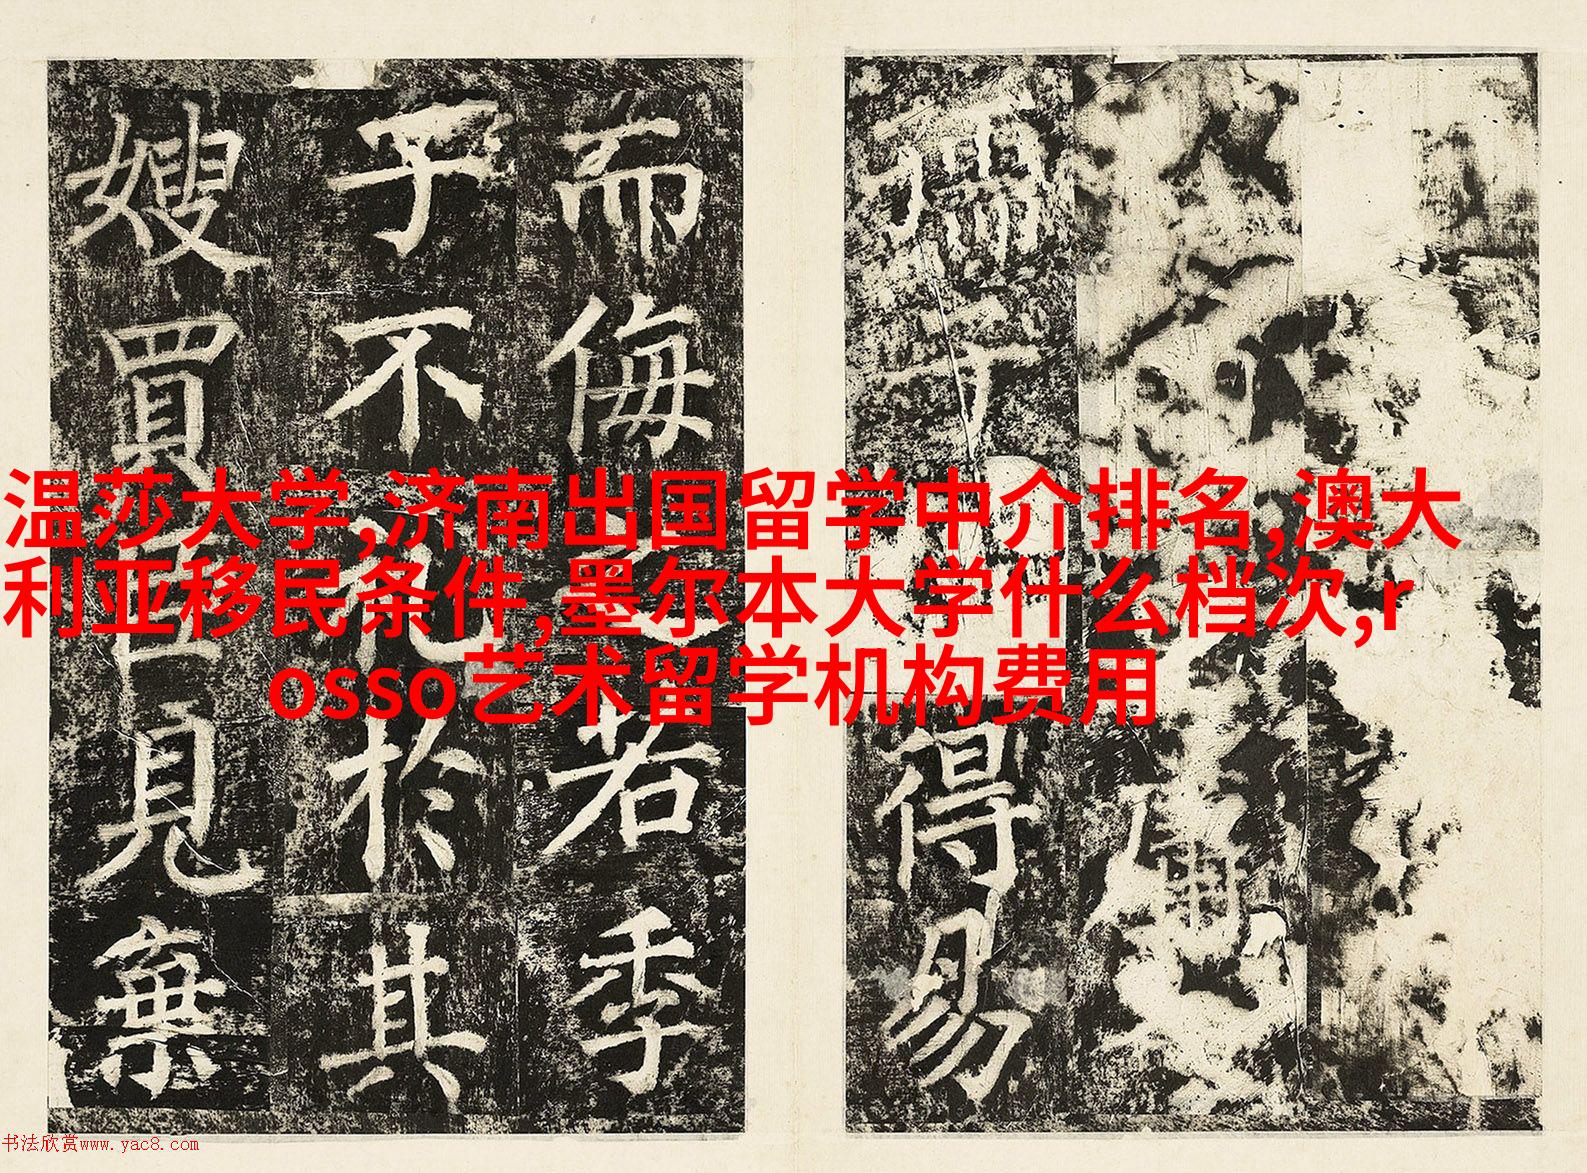 得易
而侮之若季
子不礼於其
嫂買臣見棄
温莎大学,济南出国留学中介排名,澳大
利亚移民条件,墨尔本大学什么档次,r
osso艺术留学机构费用
书法欣赏www.yac8.com